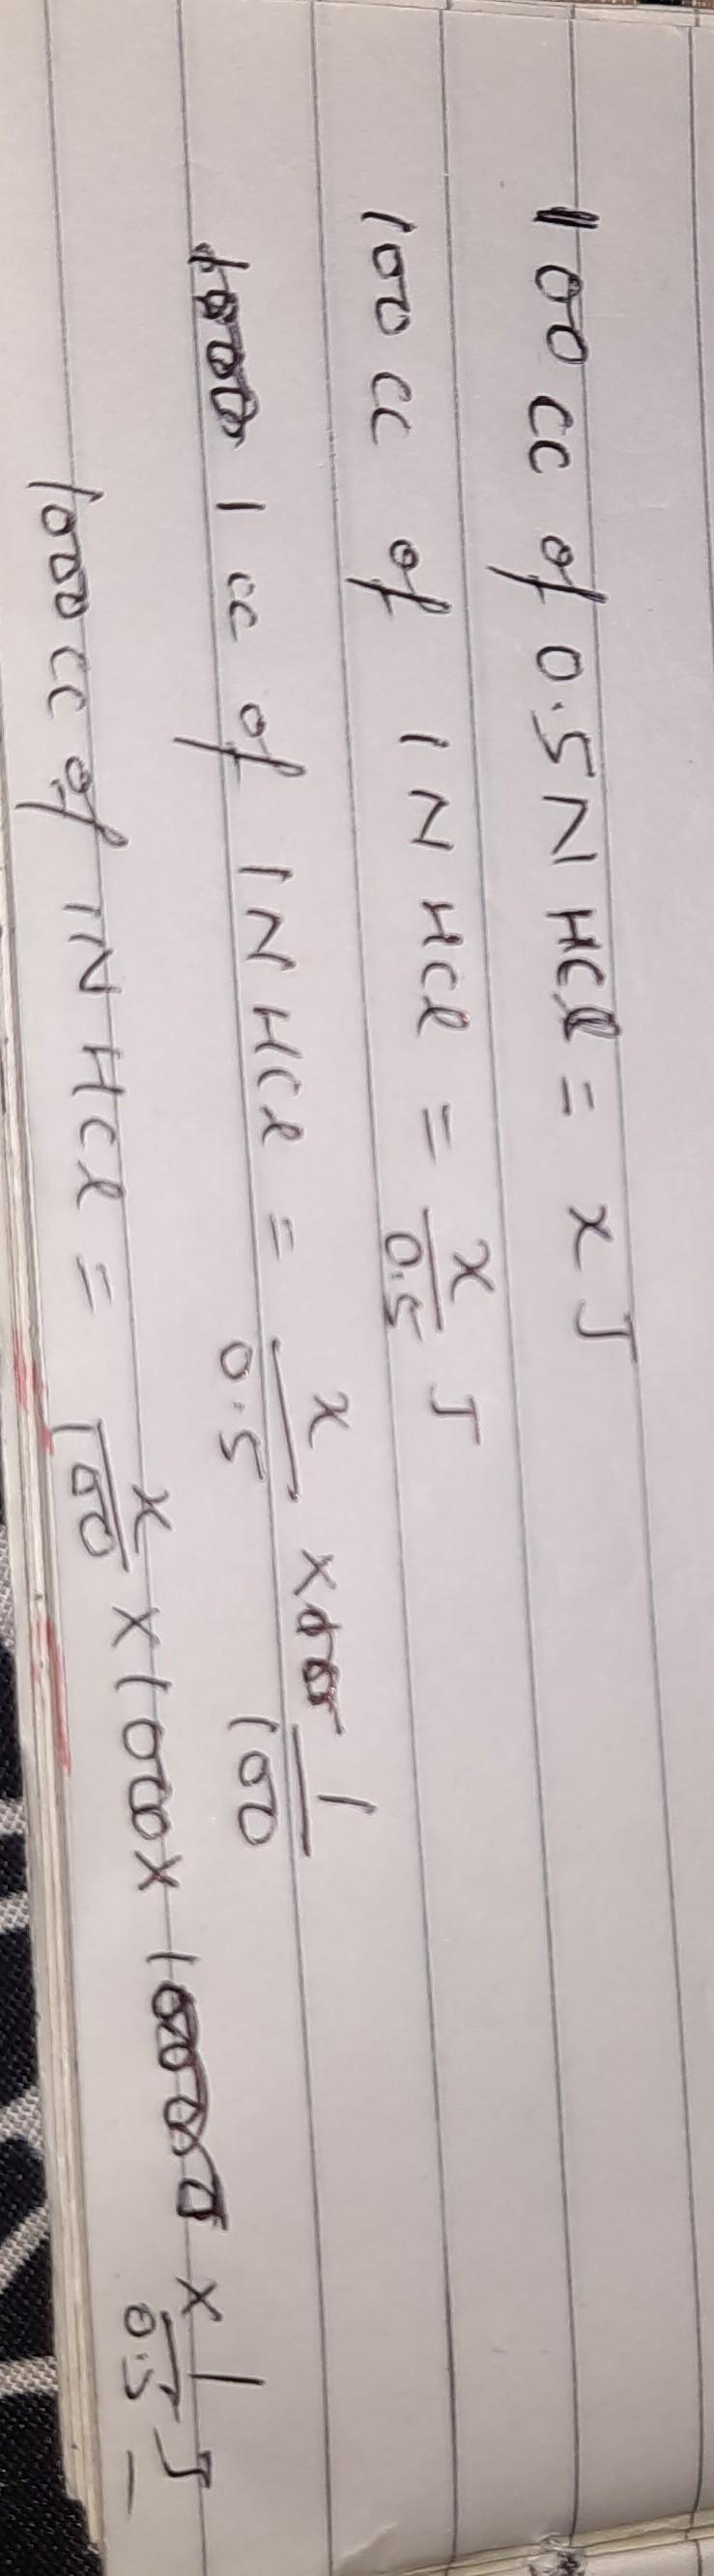 100 cc of 0.5N HCl = x J
100 cc of 1 N HCl = x/0.5 J
1 cc of 1N HCl = x/0.5 × 1/100
1000 cc of 1N HCl = x/100 × 1000 × 1/0.5 J